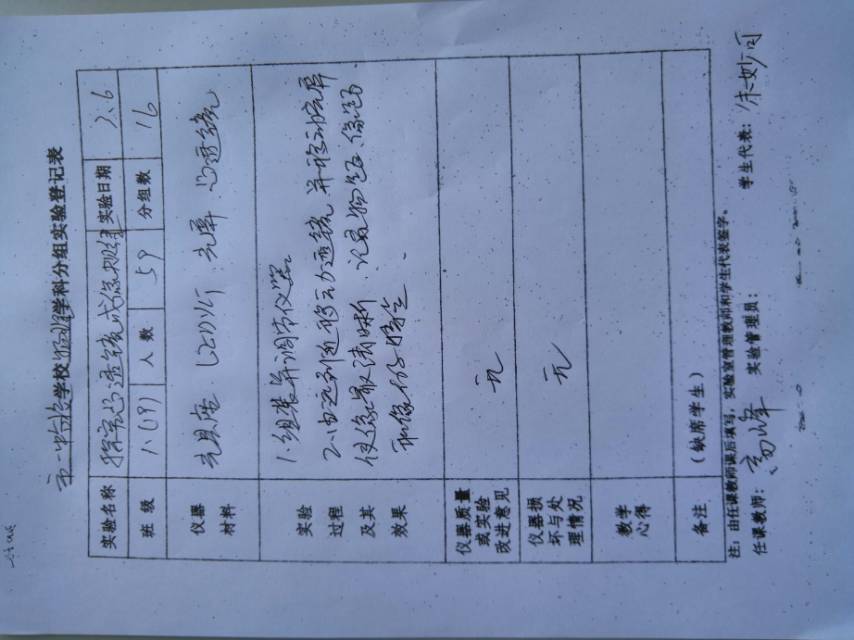 市一中学校物理学科分组实验登记表
实验名称 探究凸透镜成像规律 实验日期 2.6
班级 八(19) 人数 59 分组数 16
仪器材料 光具座、LED灯、光屏、凸透镜
实验过程及其效果 1.组装并调节仪器
2.由远到近移动凸透镜,并移动光屏
使像最清晰,记录物距、像距
和像的特点.
仪器质量或实验改进意见 无
仪器损坏与处理情况 无
教学心得
备注 (缺席学生)
注:由任课教师课后填写,实验室管理教师和学生代表签字。
任课教师:高峰 实验管理员: 学生代表:朱妙可